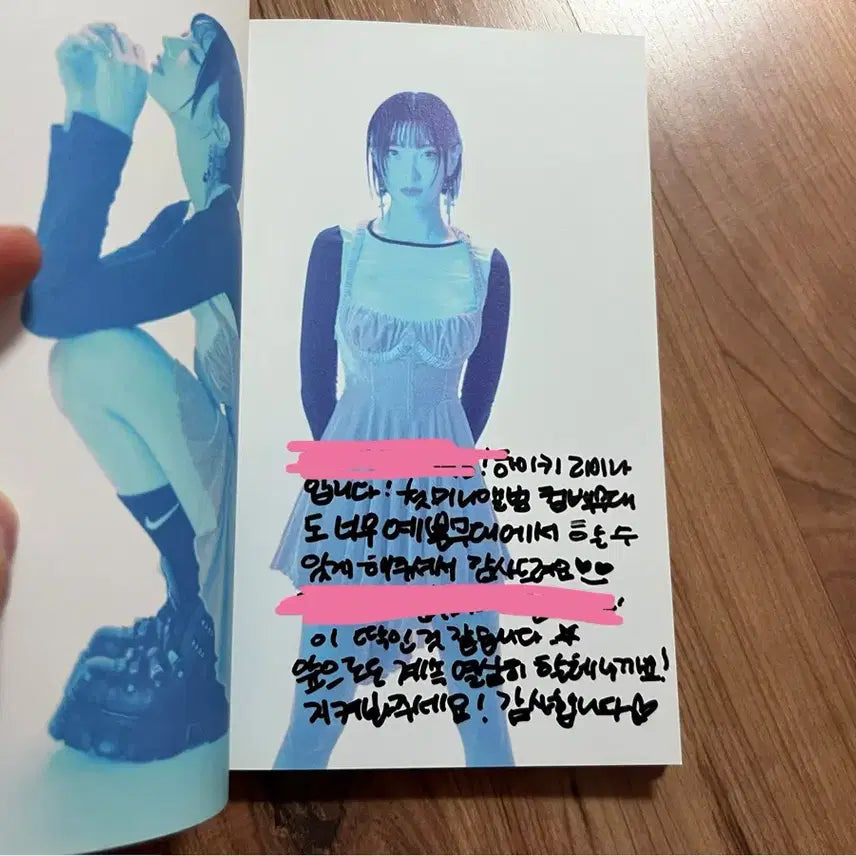 ! 하이키 리이나
입니다! 첫 미니앨범 컴백무대
도 너무 예쁜무대에서 하는수
있게 해주셔서 감사드려요
이 딱인것 같습니다
앞으로도 계속 열심히 할테니까요!
지켜봐주세요! 감사합니다